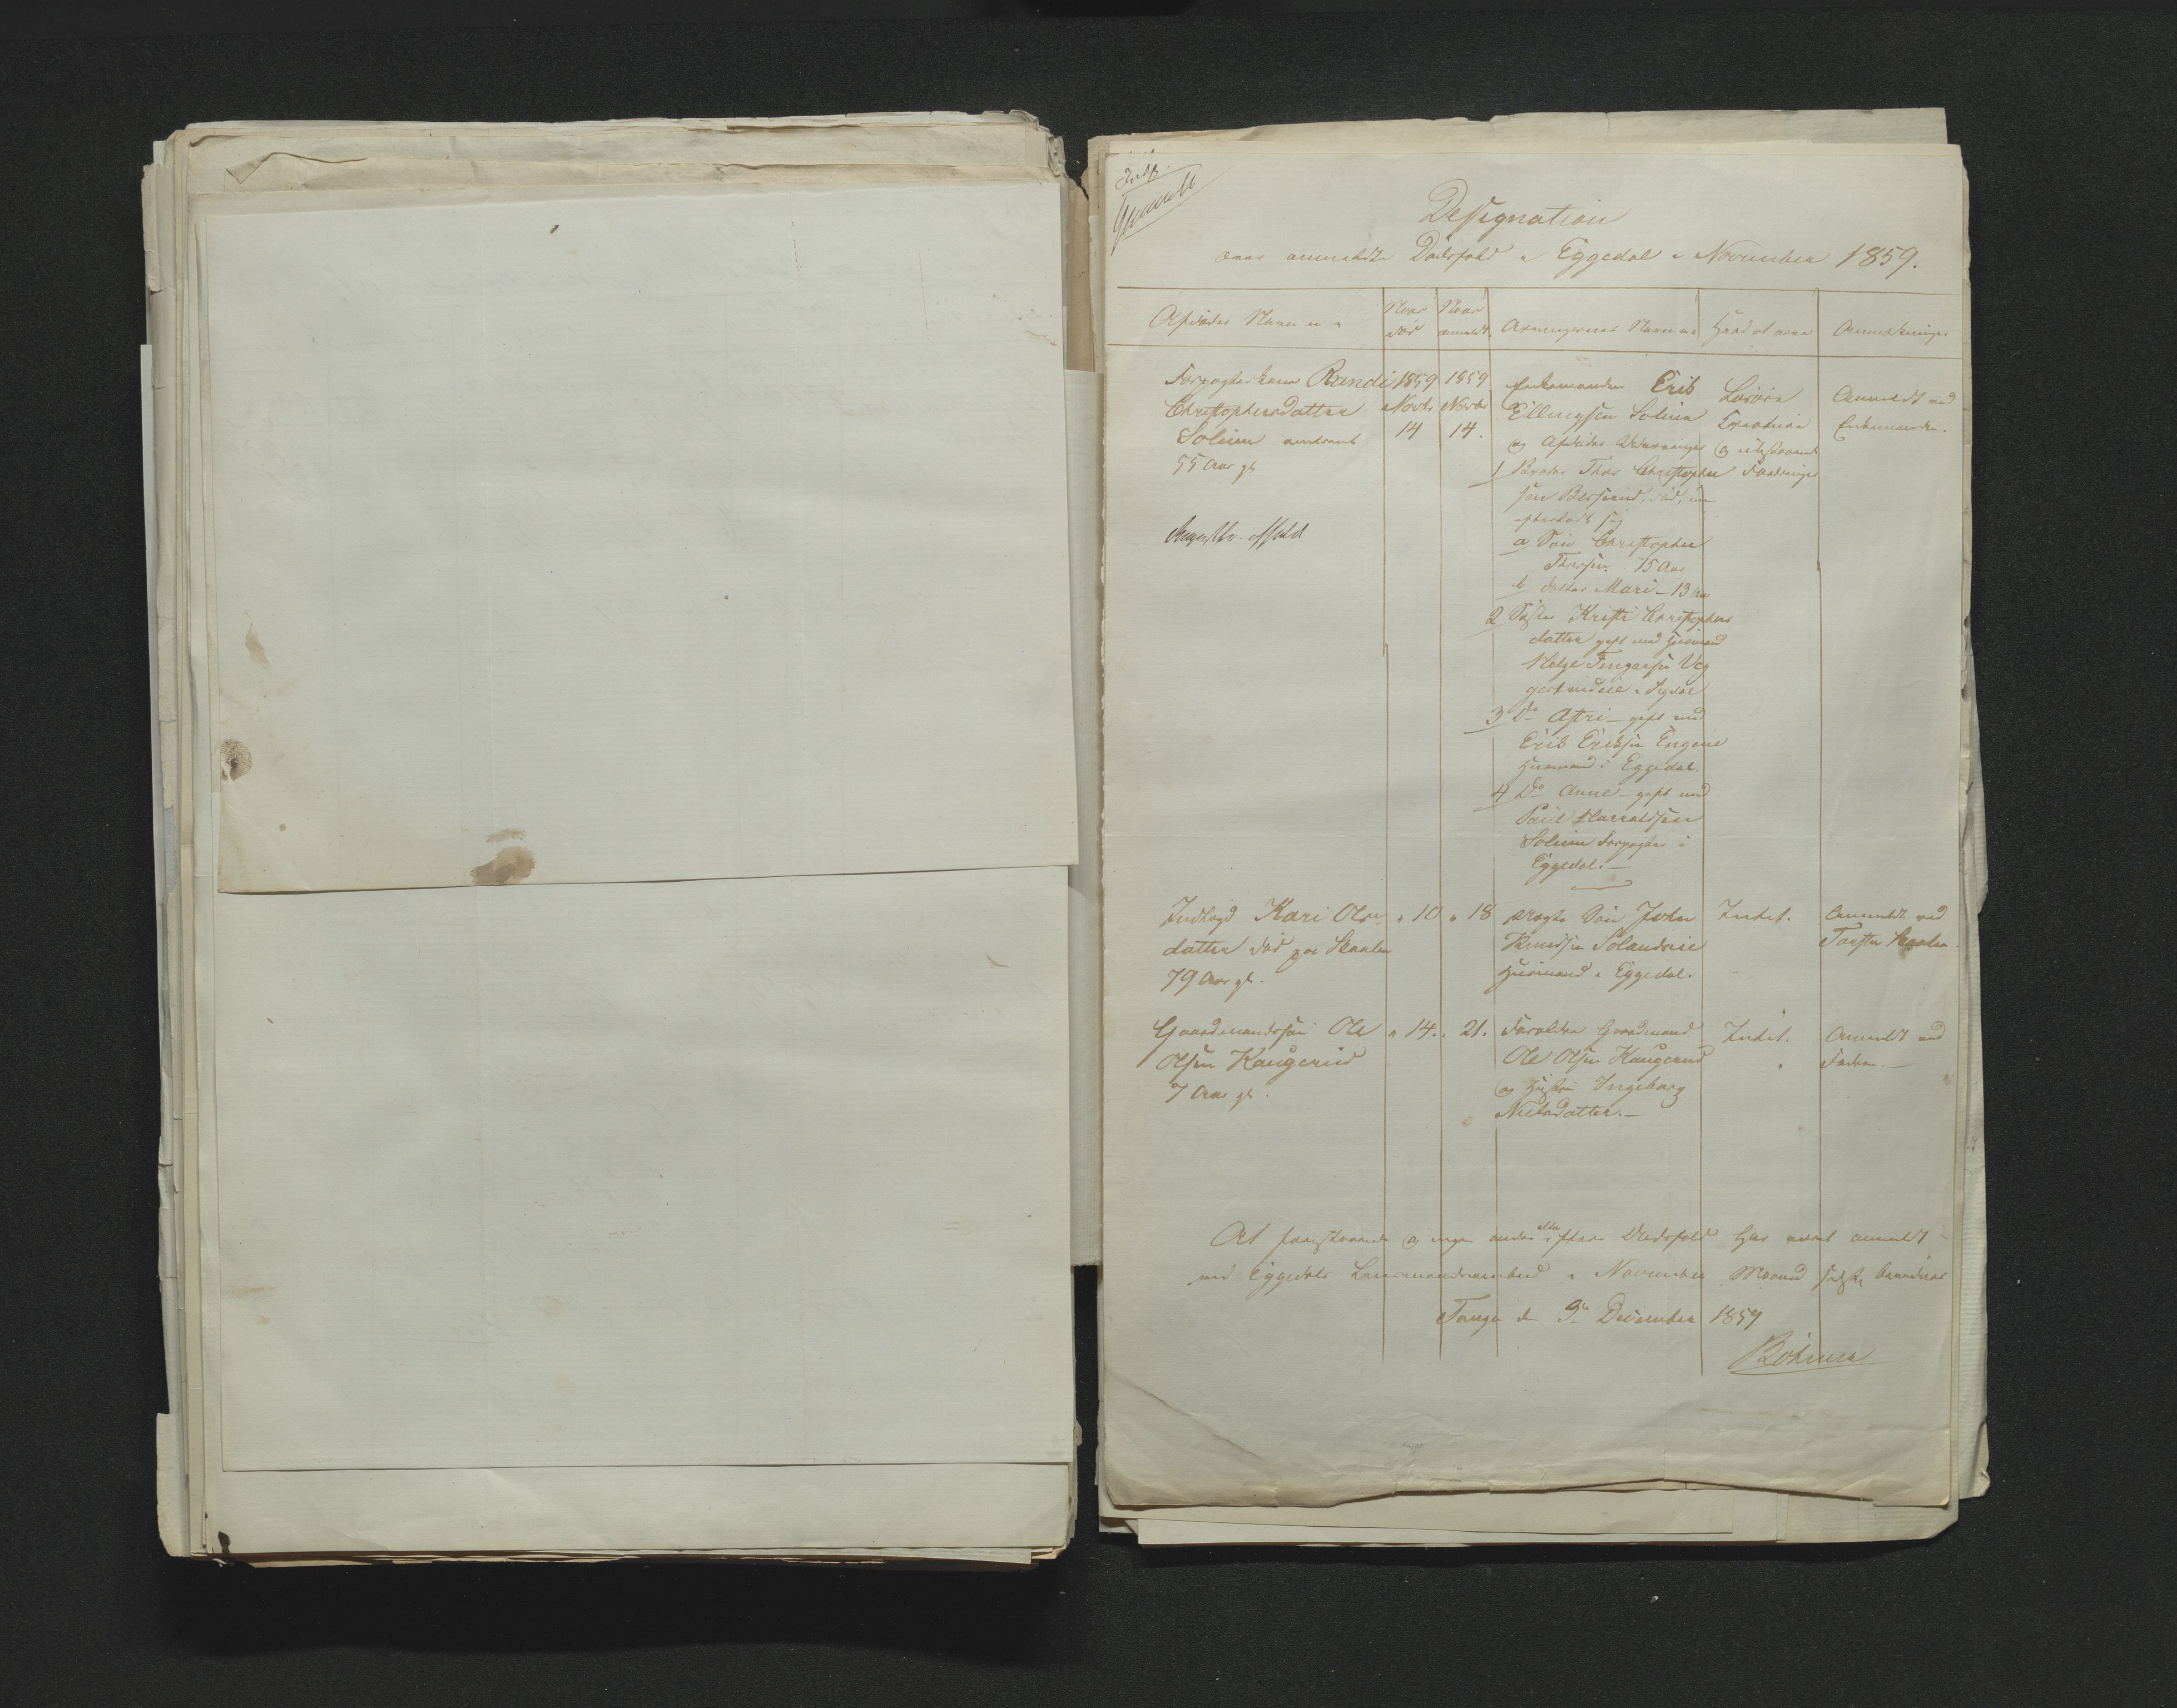 Indf.
Gjennomb
Designation
over anmeldte Dødsfald i Eggedal i November 1859.
Afdødes Navn m.
Naar død
Naar anmeldt
Arvingernes Navn m.
Hvad at arve
Anmærkninger
Forpagterkone Randi
Christophersdatter
Solum omtrent
55 Aar gl.
1859
Novbr
14
1859
Novbr
14.
Enkemanden Erik
Ellingsen Solum
og Afdødes Udarvinger
1 Broder Thor Christopher
sen Bersrud, død,
efterladt sig
a Søn Christopher
Thorsen 15 Aar
b datter Mari - 13 Aar
2 Søster Kristi Christophers
datter gift med Huusmand
Helge Tingarsen Veg
gerhuseie i Sigdal
3 Do Astri - gift med
Erik Eriksen Engene
Huusmand i Eggedal.
4 Do Anne - gift med
Paul Haraldsen
Solum Forpagter i
Eggedal. -
Løsøre
Creaturer
og udestaaende
Fordringer
Anmeldt ved
Enkemanden.
Indlagd Kari Ols
datter død paa Skaalen
79 Aar gl.
" 10
" 18
Søn John
Knudsen Solandseie
Huusmand i Eggedal.
Intet.
Anmeldt ved
Torsten Skaalen
Gaardmandssøn Ole
Olsen Haugerud
7 Aar gl.
" 14.
" 21.
Forældre Gaardmand
Ole Olsen Haugerud
og Hustru Ingeborg
Nielsdatter. -
Intet.
Anmeldt ved
Faderen. -
At foranstaaende og ingen andre eller flere Dødsfald har været anmeldt
ved Eggedals Lensmandsembed i November Maaned
Tangen den 9de December 1859
Bøhmer